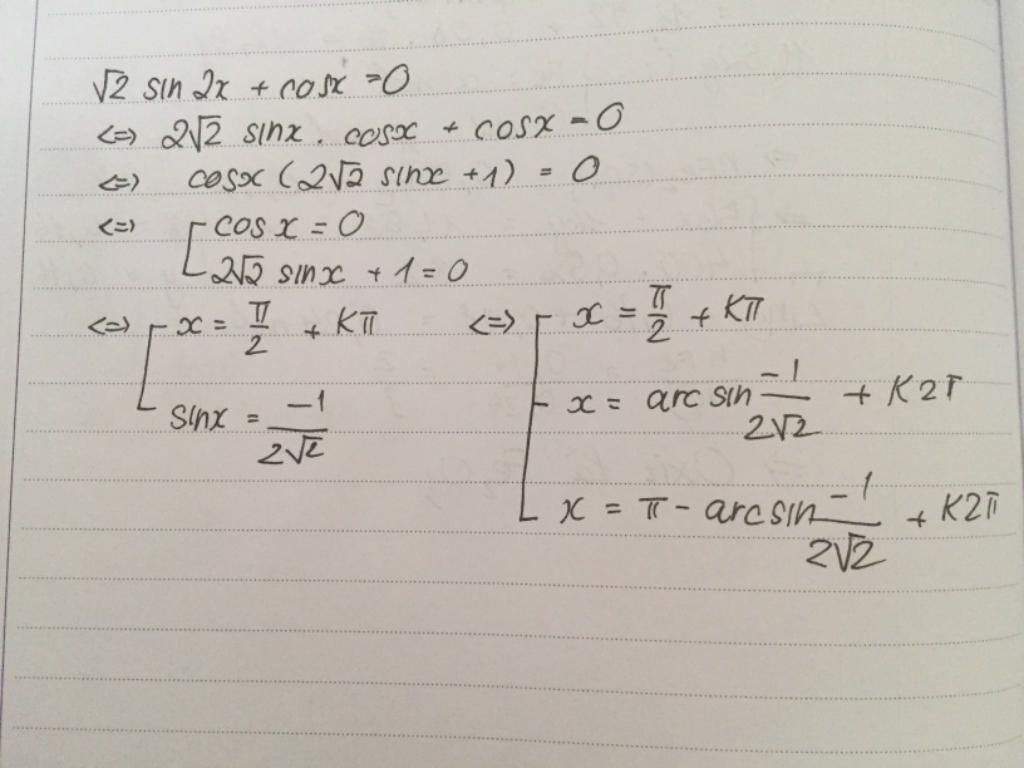 √2 sin 2x + cosx = 0
<=> 2√2 sinx . cosx + cosx = 0
<=> cosx (2√2 sinx + 1) = 0
<=> [ cos x = 0
2√2 sinx + 1 = 0
<=> [ x = π/2 + Kπ
sinx = -1/2√2
<=> [ x = π/2 + Kπ
x = arc sin -1/2√2 + K2π
x = π - arcsin -1/2√2 + K2π